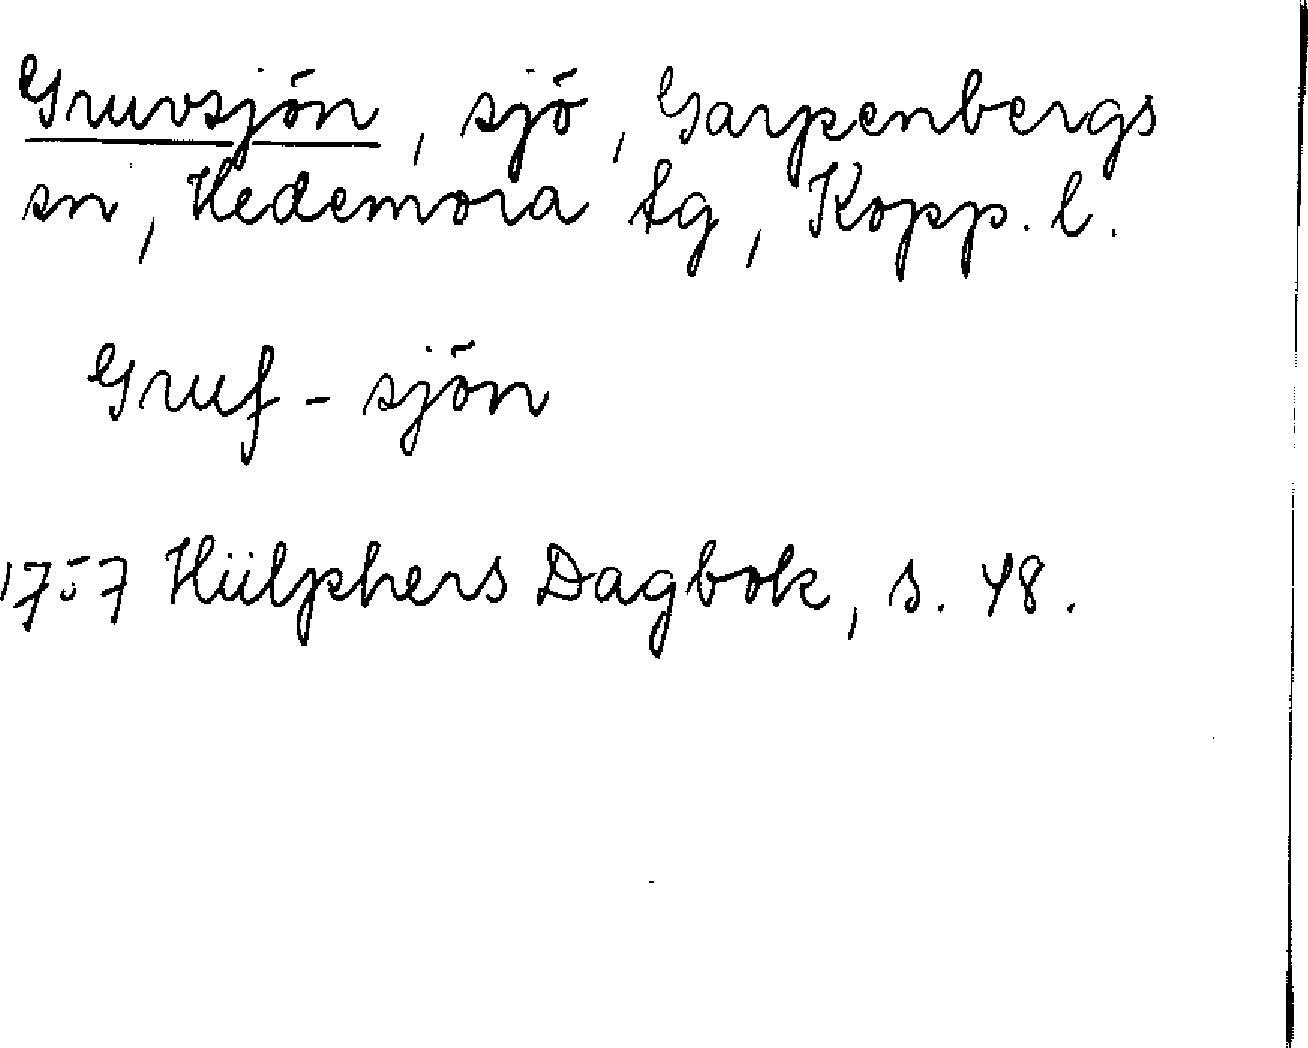 Gruvsjön, sjö, Garpenbergs
sn, Hedemora tg, Kopp. l.
Gruf-sjön
1757 Hülphers Dagbok, s. 48.